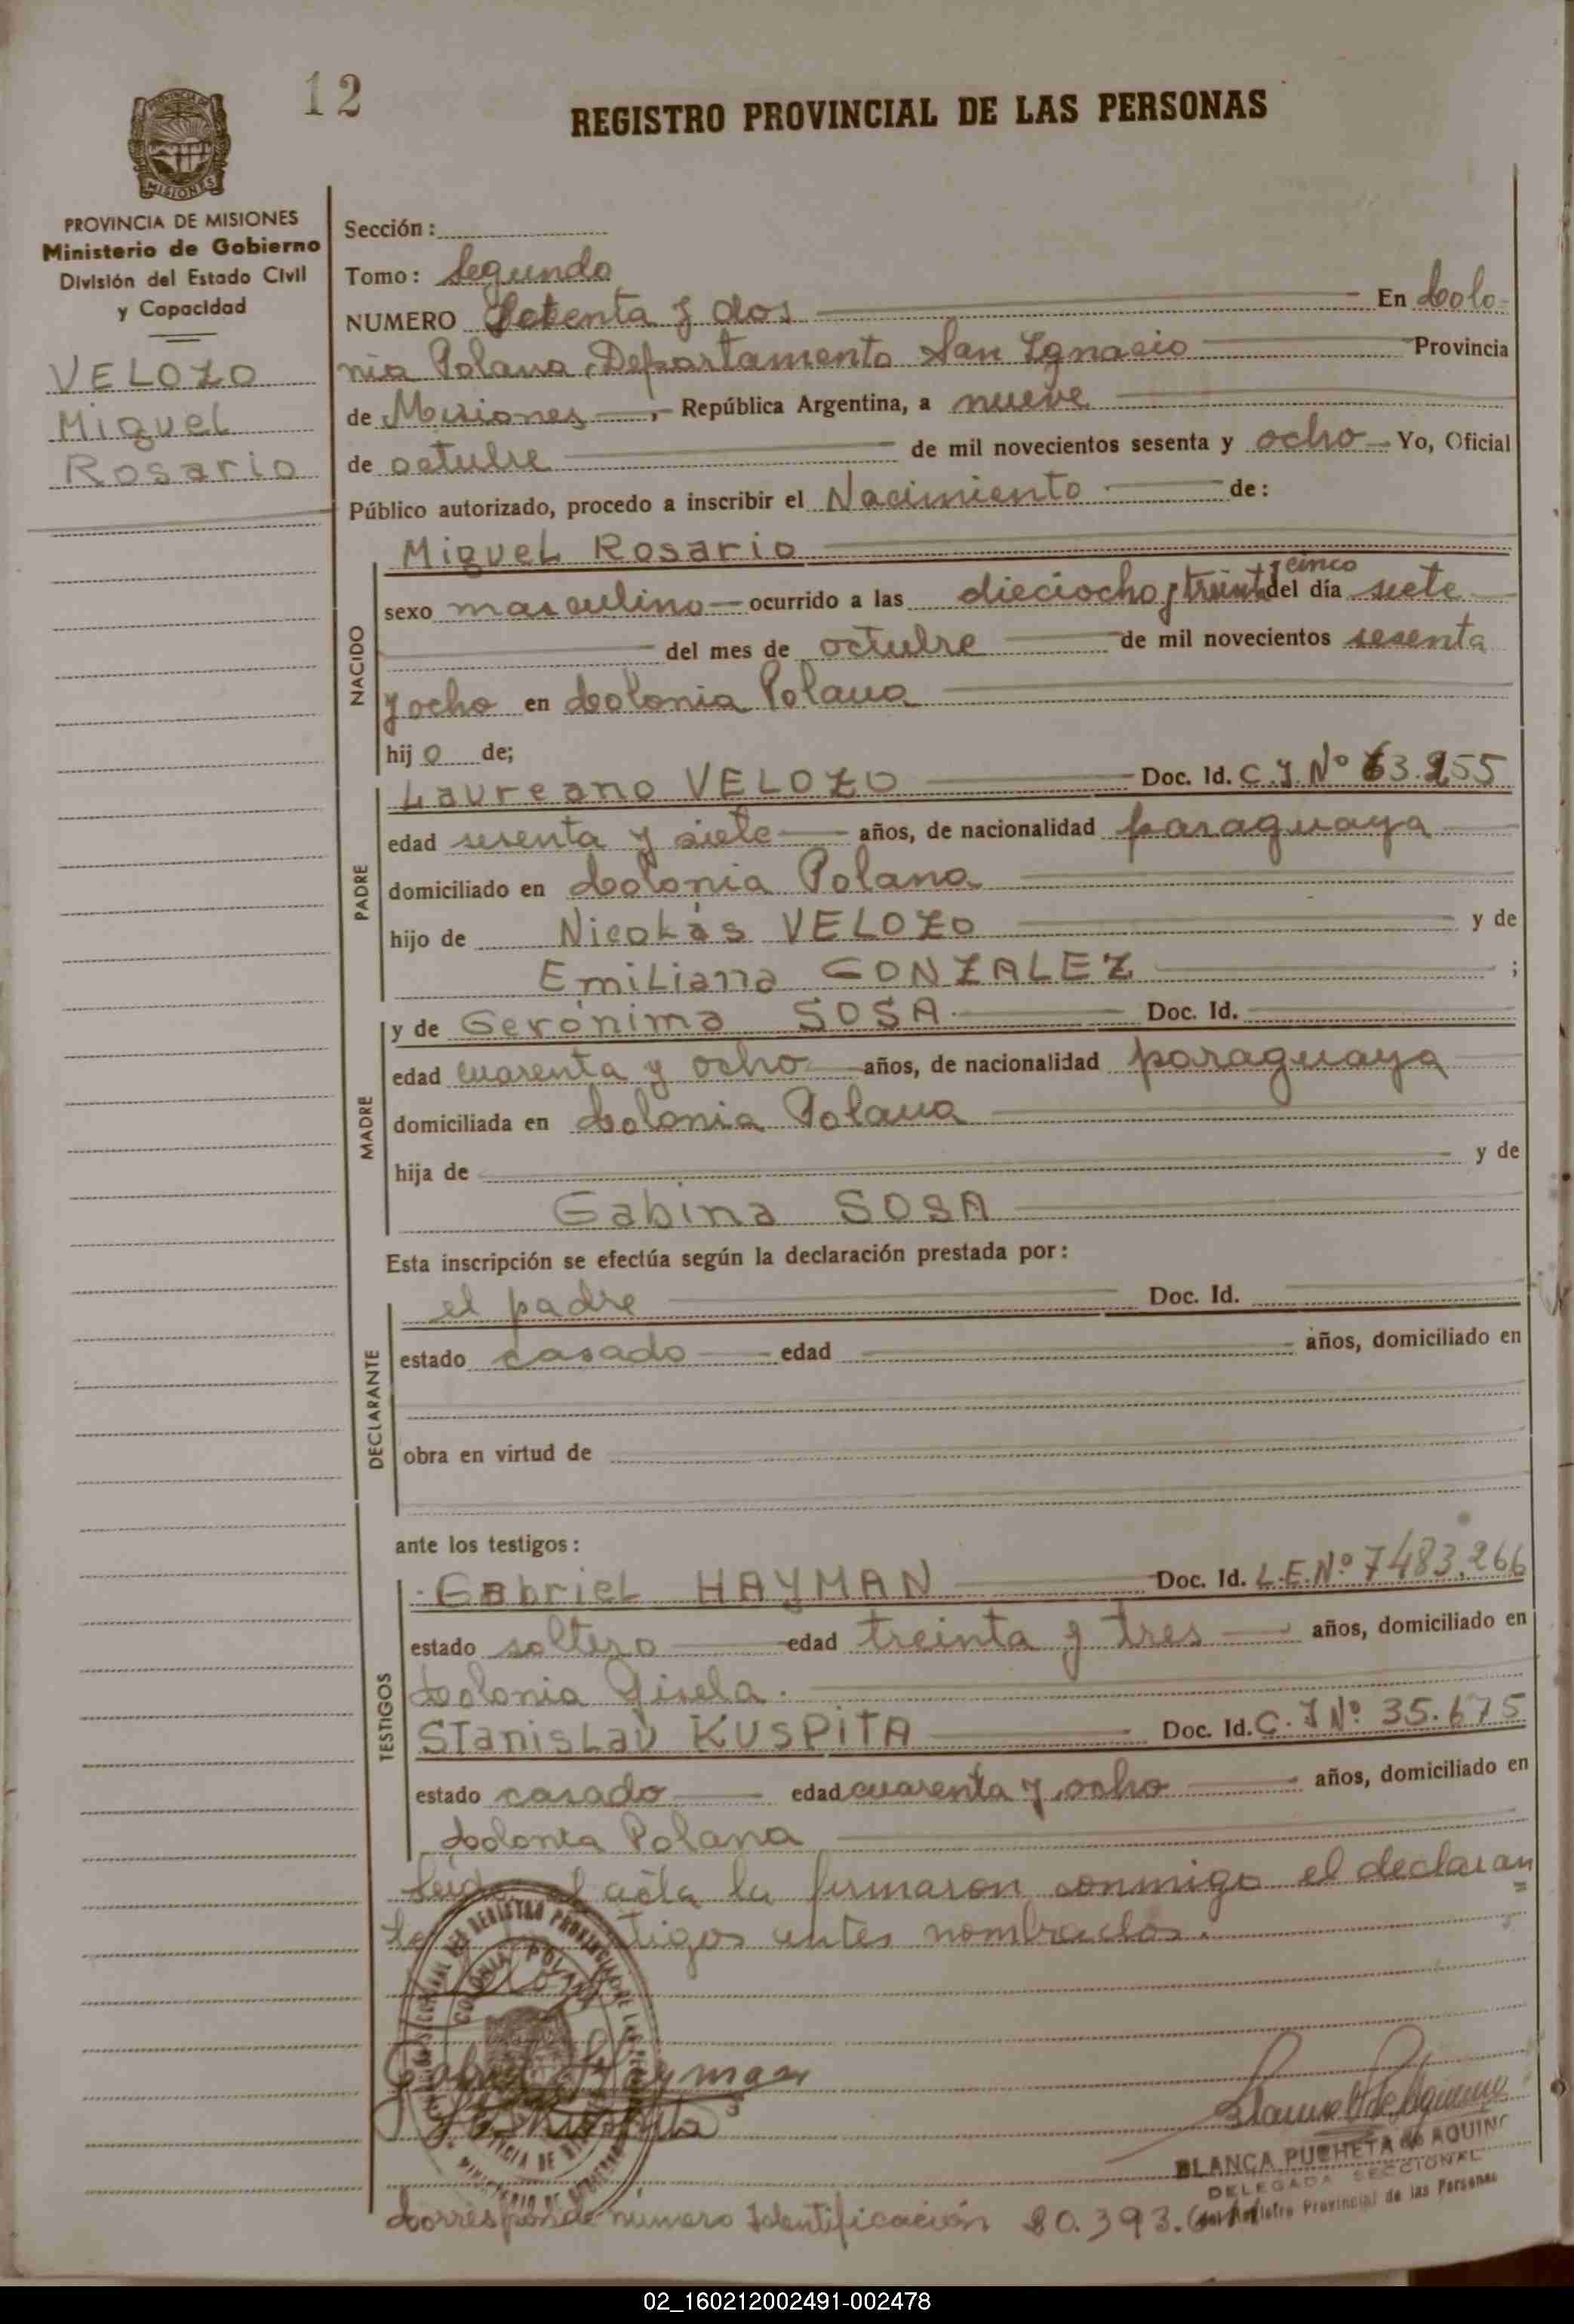 12
REGISTRO PROVINCIAL DE LAS PERSONAS
MISIONES
PROVINCIA DE MISIONES
Ministerio de Gobierno
División del Estado Civil
y Capacidad
VELOZO
Miguel
Rosario
Sección:
Tomo: Segundo
NUMERO Setenta y dos En Colo
nia Polana, Departamento San Ignacio Provincia
de Misiones, República Argentina, a nueve
de octubre de mil novecientos sesenta y ocho Yo, Oficial
Público autorizado, procedo a inscribir el Nacimiento de:
NACIDO
Miguel Rosario
y cinco
sexo masculino ocurrido a las dieciocho y treinta del día siete
del mes de octubre de mil novecientos sesenta
y ocho en Colonia Polana
hijo de;
PADRE
Laureano VELOZO Doc. Id. C.I. Nº 63.255
edad sesenta y siete años, de nacionalidad paraguaya
domiciliado en Colonia Polana
hijo de Nicolás VELOZO y de
Emiliana GONZALEZ ;
MADRE
y de Gerónima SOSA Doc. Id.
edad cuarenta y ocho años, de nacionalidad paraguaya
domiciliada en Colonia Polana
hija de y de
Gabina SOSA
Esta inscripción se efectúa según la declaración prestada por:
DECLARANTE
el padre Doc. Id.
estado casado edad años, domiciliado en
obra en virtud de
ante los testigos:
TESTIGOS
Gabriel HAYMAN Doc. Id. L.E.Nº 7483.266
estado soltero edad treinta y tres años, domiciliado en
Colonia Gisela.
Stanislav KUSPITA Doc. Id. C.I Nº 35.675
estado casado edad cuarenta y ocho años, domiciliado en
Colonia Polana
Leída el acta la firmaron conmigo el declaran
te tigos antes nombrados.
COLONIA POLANA
Gabriel Hayman
BLANCA PUCHETA de AQUINO
DELEGADA SECCIONAL
del Registro Provincial de las Personas
Corresponde número Identificación 20.393.
02_160212002491-002478